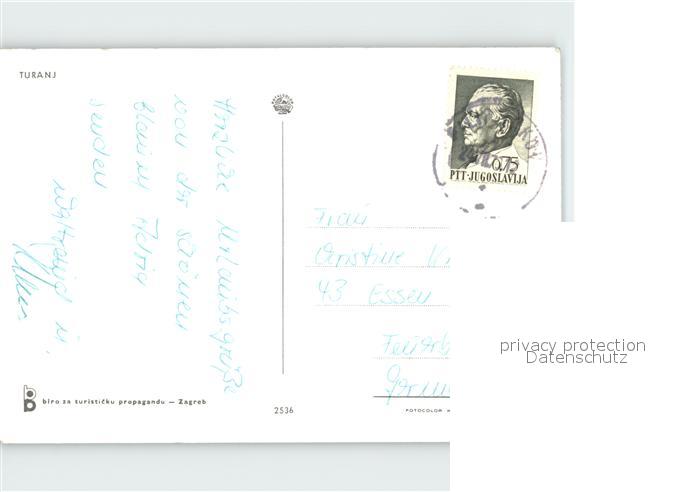 TURANJ
Herzliche Urlaubsgrüße
von der schönen
blauen Adria
senden
Waltraud u.
0,75
PTT-JUGOSLAVIJA
Frau
Christine
43 Essen
biro za turističku propagandu — Zagreb
2536
FOTOCOLOR
privacy protection
Datenschutz